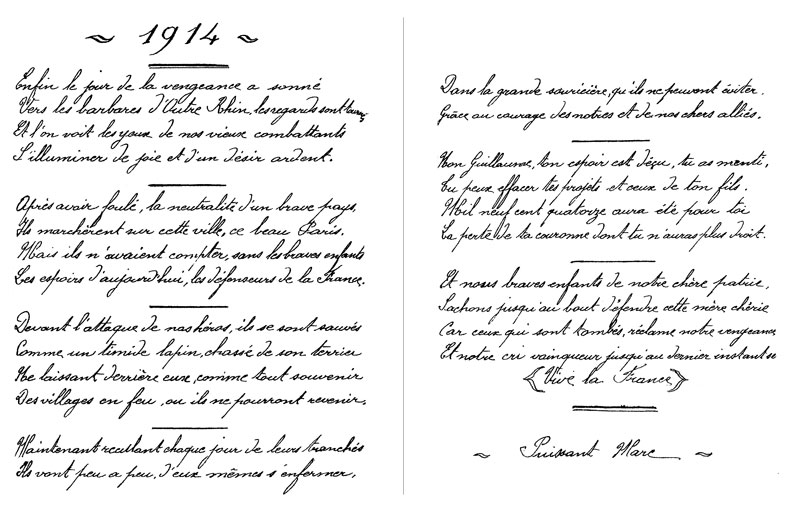 1914
Enfin le jour de la vengeance a sonné
Vers les barbares d'Outre Rhin, les regards sont tournés
Et l'on voit les yeux de nos vieux combattants
S'illuminer de joie et d'un désir ardent.
Après avoir foulé, la neutralité d'un brave pays,
Ils marchèrent sur cette ville, ce beau Paris.
Mais ils n'avaient compter, sans les braves enfants
Les espoirs d'aujourd'hui, les défenseurs de la France.
Devant l'attaque de nas héros, ils se sont sauvés
Comme un timide lapin, chassé de son terrier
Ne laissant derrière eux, comme tout souvenir
Des villages en feu, ou ils ne pourront revenir.
Maintenant reculant chaque jour de leurs tranchés
Ils vont peu a peu, d'eux mêmes s'enfermer,
Dans la grande souricière, qu'ils ne peuvent éviter.
Grâce au courage des notres et de nos chers alliés.
Non Guillaume, ton espoir est déçu, tu as menti,
Tu peux effacer tes projets et ceux de ton fils.
Mil neuf cent quatorze aura été pour toi
La perte de ta couronne dont tu n'auras plus droit.
Et nous braves enfants de notre chère patrie,
Sachons jusqu'au bout défendre cette mère chérie
Car ceux qui sont tombés, réclame notre vengeance
Et notre cri vainqueur jusqu'au dernier instant se
Vive la France
Puissant Marc